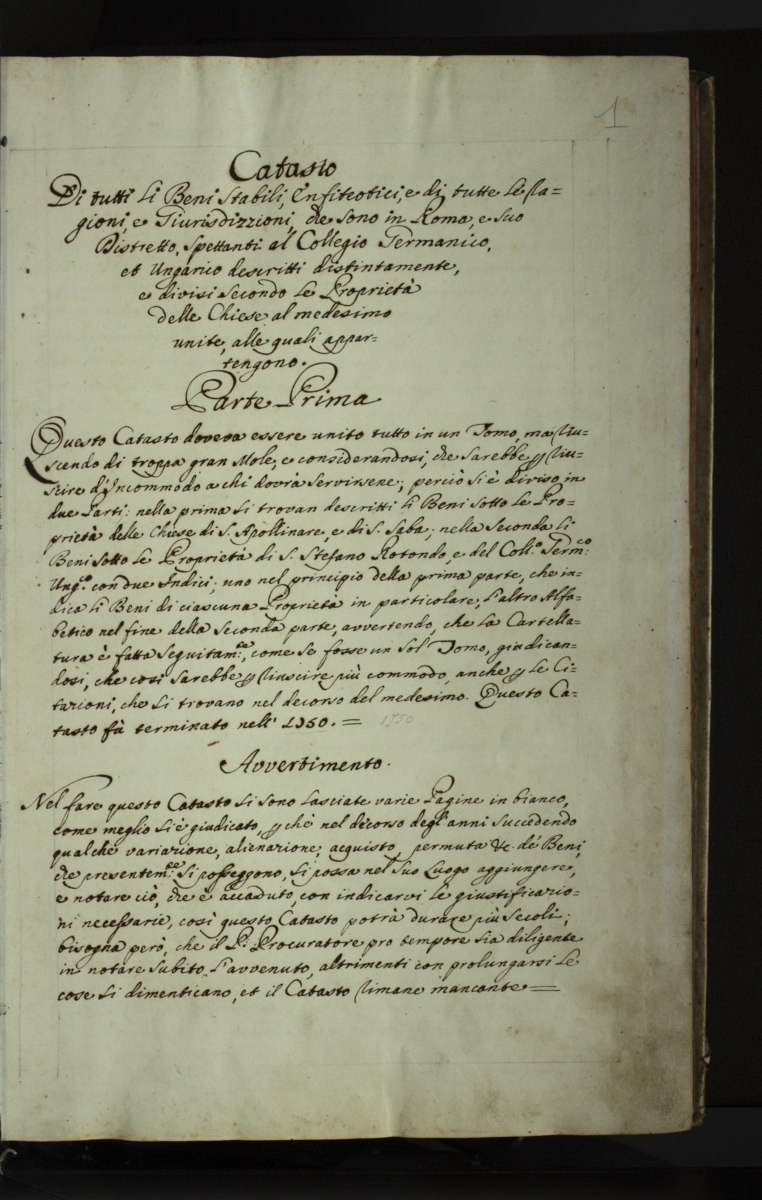 1
Catasto
Di tutti li Beni stabili, Enfiteotici, e di tutte le Ra=
gioni, e Giurisdizzioni, che sono in Roma, e suo
Distretto, spettanti al Collegio Germanico,
et Ungarico descritti distintamente,
e divisi secondo le Proprietà
delle Chiese al medesimo
unite, alle quali appar=
tengono.
Parte Prima
Questo Catasto doveva essere unito tutto in un Tomo, ma riu=
scendo di troppa gran Mole, e considerandosi, che sarebbe p riu=
scire d'Incommodo a chi dovrà servirsene; perciò si è diviso in
due Parti: nella prima si trovan descritti li Beni sotto le Pro=
prietà delle Chiese di S. Apollinare, e di S. Saba; nella seconda li
Beni sotto le Proprietà di S. Stefano Rotondo, e del Coll.o Germ:co
Ung.o con due Indici; uno nel principio della prima parte, che in=
dica li Beni di ciascuna Proprietà in particolare, l'altro Alfa=
betico nel fine della seconda parte, avvertendo, che la Cartella=
tura è fatta seguitam:te, come se fosse un sol Tomo, giudican=
dosi, che così sarebbe p riuscire più commodo, anche p le Ci=
tazioni, che si trovano nel decorso del medesimo. Questo Ca=
tasto fù terminato nell' 1750. = 1750
Avvertimento.
Nel fare questo Catasto si sono lasciate varie Pagine in bianco,
come meglio si è giudicato, p chè nel decorso degl'anni succedendo
qualche variazione, alienazione, acquisto, permuta &c. de' Beni,
che presentem:te si posseggono, si possa nel suo luogo aggiungere,
e notare ciò, che è accaduto, con indicarvi le giustificazio=
ni necessarie, così questo Catasto potrà durare più secoli;
bisogna però, che il P. Procuratore pro tempore sia diligente
in notare subito l'avvenuto, altrimenti con prolungarsi le
cose si dimenticano, et il Catasto rimane mancante =